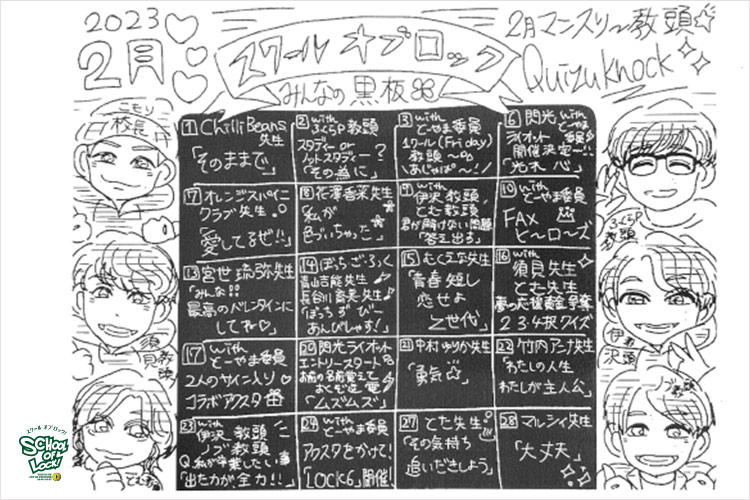 2023
2月
スクールオブロック
みんなの黒板
2月マンスリー教頭
Quizuknock
こもり
校長
須貝教頭
ふくらP
教頭
伊沢
教頭
ノブ教頭
1 Chilli Beans
先生
「そのままで」
2 with
ふくらP教頭
スタディー or
ノットスタディー?
「その為に」
3 with
とーやま委員
1クール(Friday)
教頭
あじゃぱー!」
6 閃光 with
ライオット とーやま委員
開催決定
「光れ 心」
7 オレンジスパイニ
クラブ先生
「愛してるぜ!!」
8 花澤香菜先生
「私が
色づいちゃった」
9 with
伊沢教頭、
とむ教頭
君が解けない問題
「答え出ろ」
10 with
とーやま委員
FAX
ヒ〜ロ〜ズ
13 宮世琉弥先生
「みんな!!
最高のバレンタインに
してネ♡」
14 ぼっち・ざ・ろっく
青山吉能先生
長谷川育美先生
「ぼっち ず びー
あんびしゃす!」
15 むくえな先生
「青春短し
恋せよ
Z世代」
16 with
須貝先生
とむ先生
夢の応援資金争奪
234択クイズ
17 with
とーやま委員
2人のサイン入り♡
コラボアクスタ
20 閃光ライオット
エントリースタート
お前の名前覚えて
おくぞ逆電
「ムズムズ」
21 中村ゆりか先生
「勇気☆」
22 竹内アンナ先生
「わたしの人生
わたしが主人公」
23 with
伊沢教頭
ノブ教頭
Q私が卒業したい事
「出た力が全力!!」
24 with
とーやま委員
アクスタをかけて!
「LOCK6」開催!
27 とた先生
「その気持ち
追いだきしよう」
28 マルシィ先生
「大丈夫」
スクール オブ ロック!
SCHOOL
OF
LOCK!